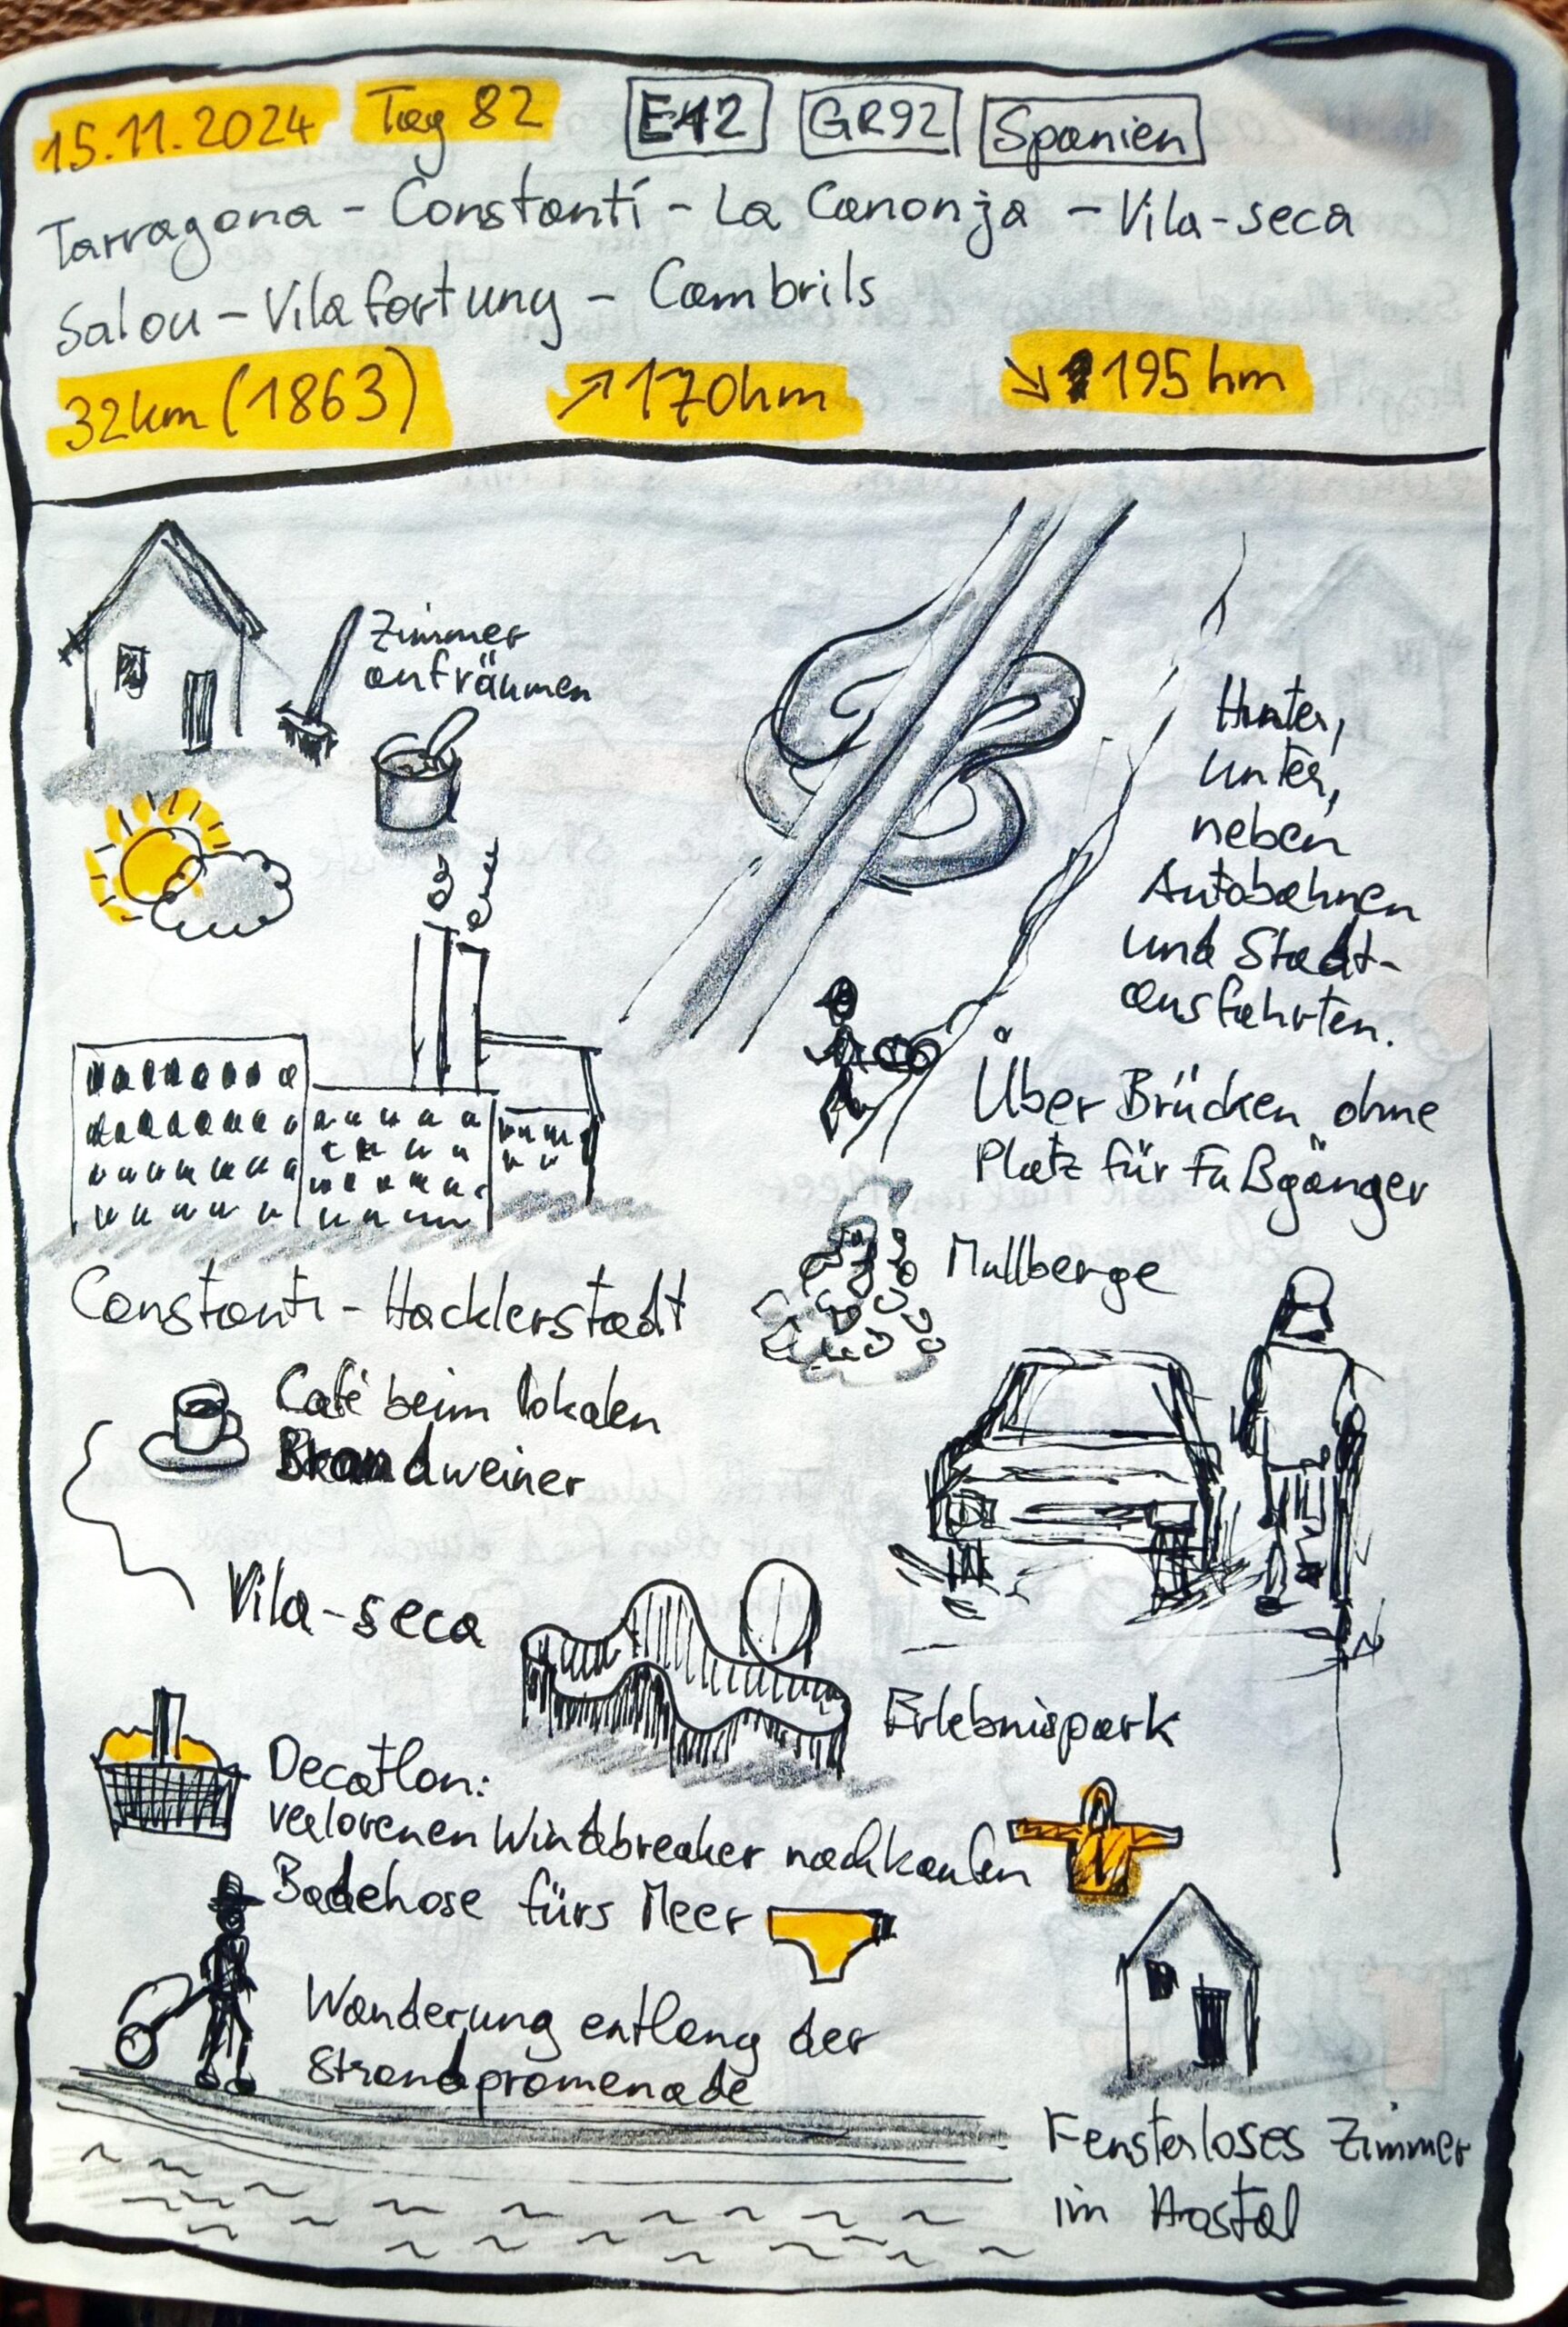 15.11.2024 Tag 82 E12 GR92 Spanien
Tarragona - Constantí - La Canonja - Vila-seca
Salou - Vilafortuny - Cambrils
32km (1863) ↗170hm ↘195hm
Zimmer
aufräumen
Hinter,
unter,
neben
Autobahnen
und Stadt-
ausfahrten.
Über Brücken ohne
Platz für Fußgänger
Müllberge
Constanti - Hacklerstadt
Café beim lokalen
Brandweiner
Vila-seca
Erlebnispark
Decatlon:
verlorenen Windbreaker nachkaufen
Badehose fürs Meer
Wanderung entlang der
Strandpromenade
Fensterloses Zimmer
im Hostal